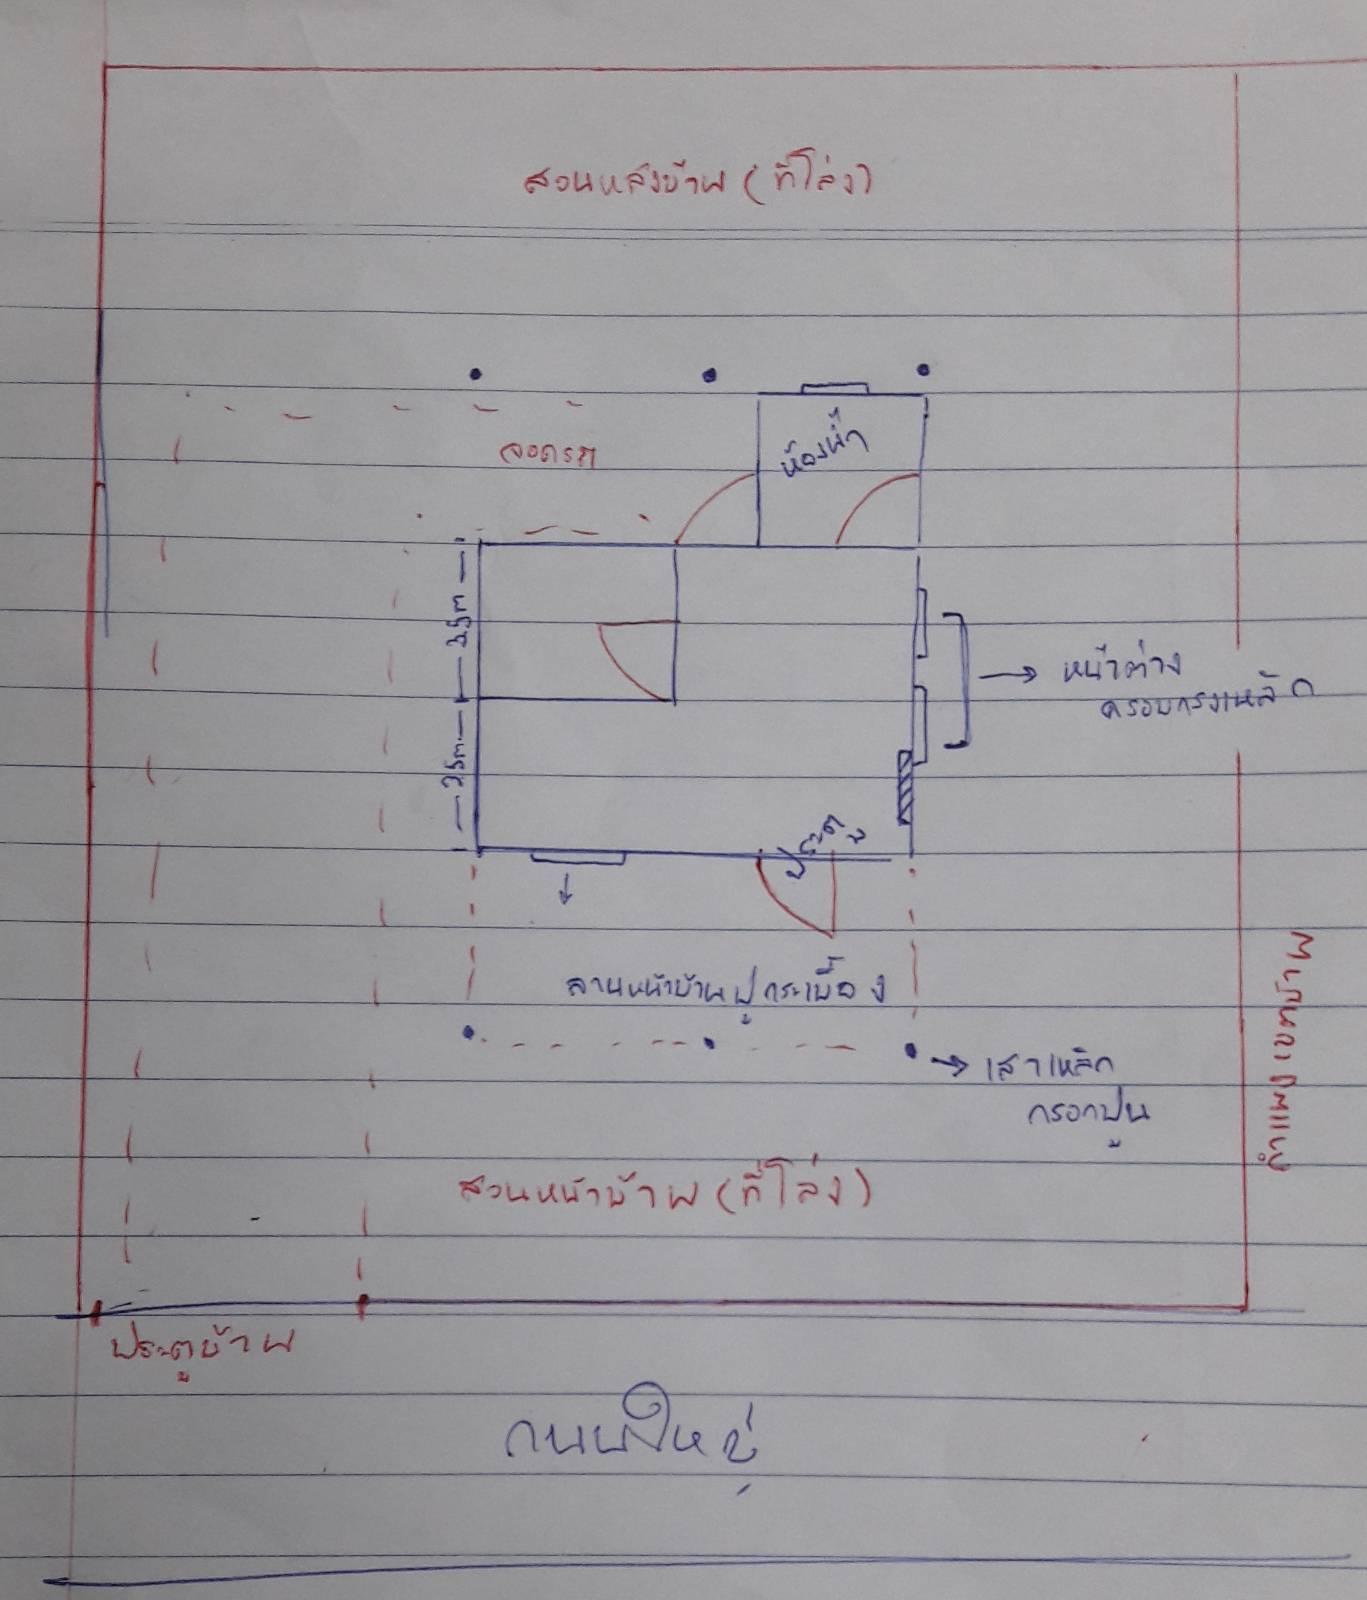 สวนหลังบ้าน (ที่โล่ง)
จอดรถ
ห้องน้ำ
2.5m
2.5m
หน้าต่าง
ครอบกรงเหล็ก
ประตู
ลานหน้าบ้านปูกระเบื้อง
เสาเหล็ก
กรอกปูน
สวนหน้าบ้าน (ที่โล่ง)
ประตูบ้าน
ถนนใหญ่